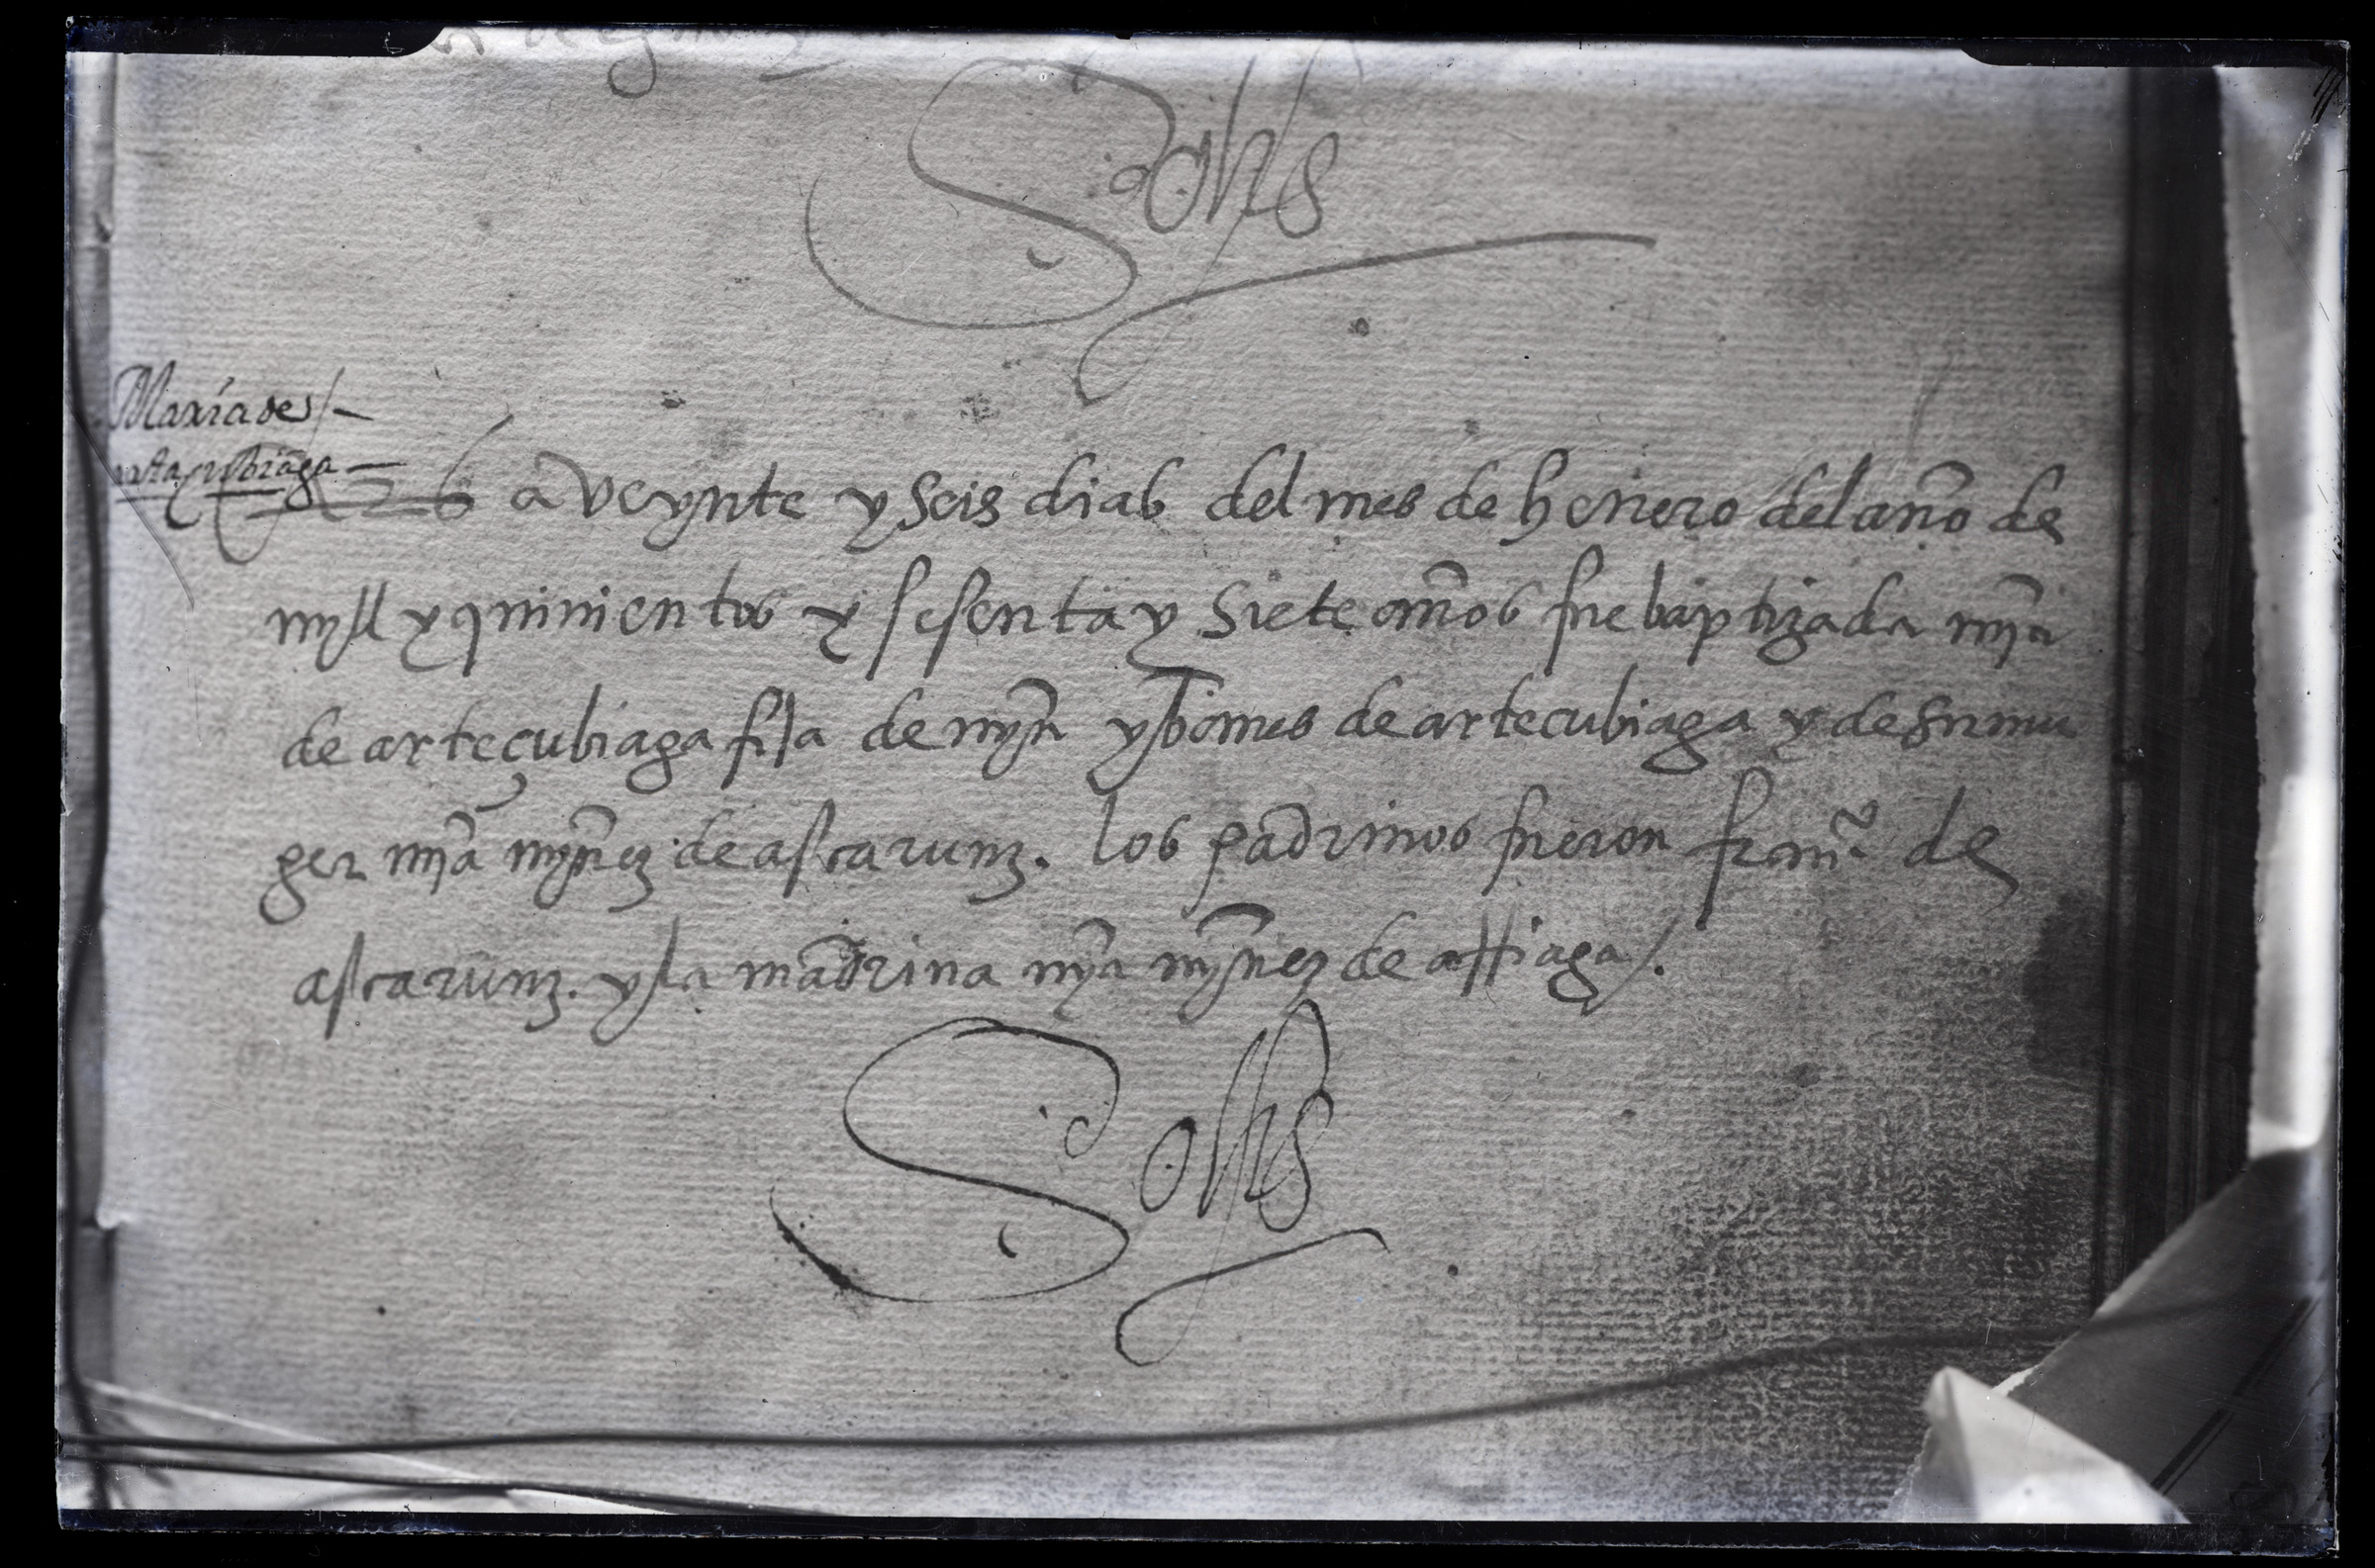 Solis
María de
26 a veynte y seis dias del mes de henero del año de
myll y quinientos y sesenta y siete años fue baptizada mya
de artecubiaga fija de myn ybañes de artecubiaga y de su mu
ger mya mynez de ascarunz. los padrinos fueron franco de
ascarunz. y la madrina mya mynez de
Solis